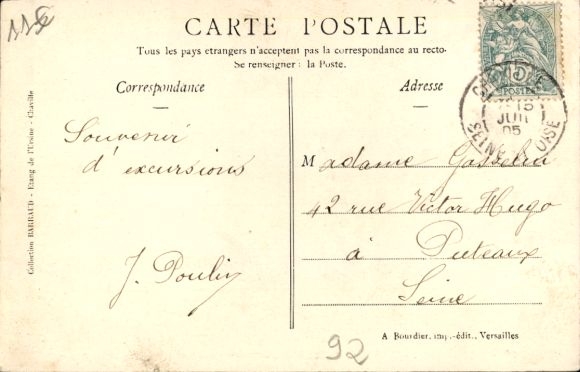 CARTE POSTALE
Tous les pays etrangers n'acceptent pas la correspondance au recto.
Se renseigner à la Poste.
Correspondance
Adresse
Souvenir
d'excursions
J. Poulin
Madame Gosselin
42 rue Victor Hugo
à Puteaux
Seine
POSTES
JUIL
05
SEINE OISE
Collection BARBAUD - Etang de l'Ursine - Chaville
A Bourdier, imp.-édit., Versailles
92